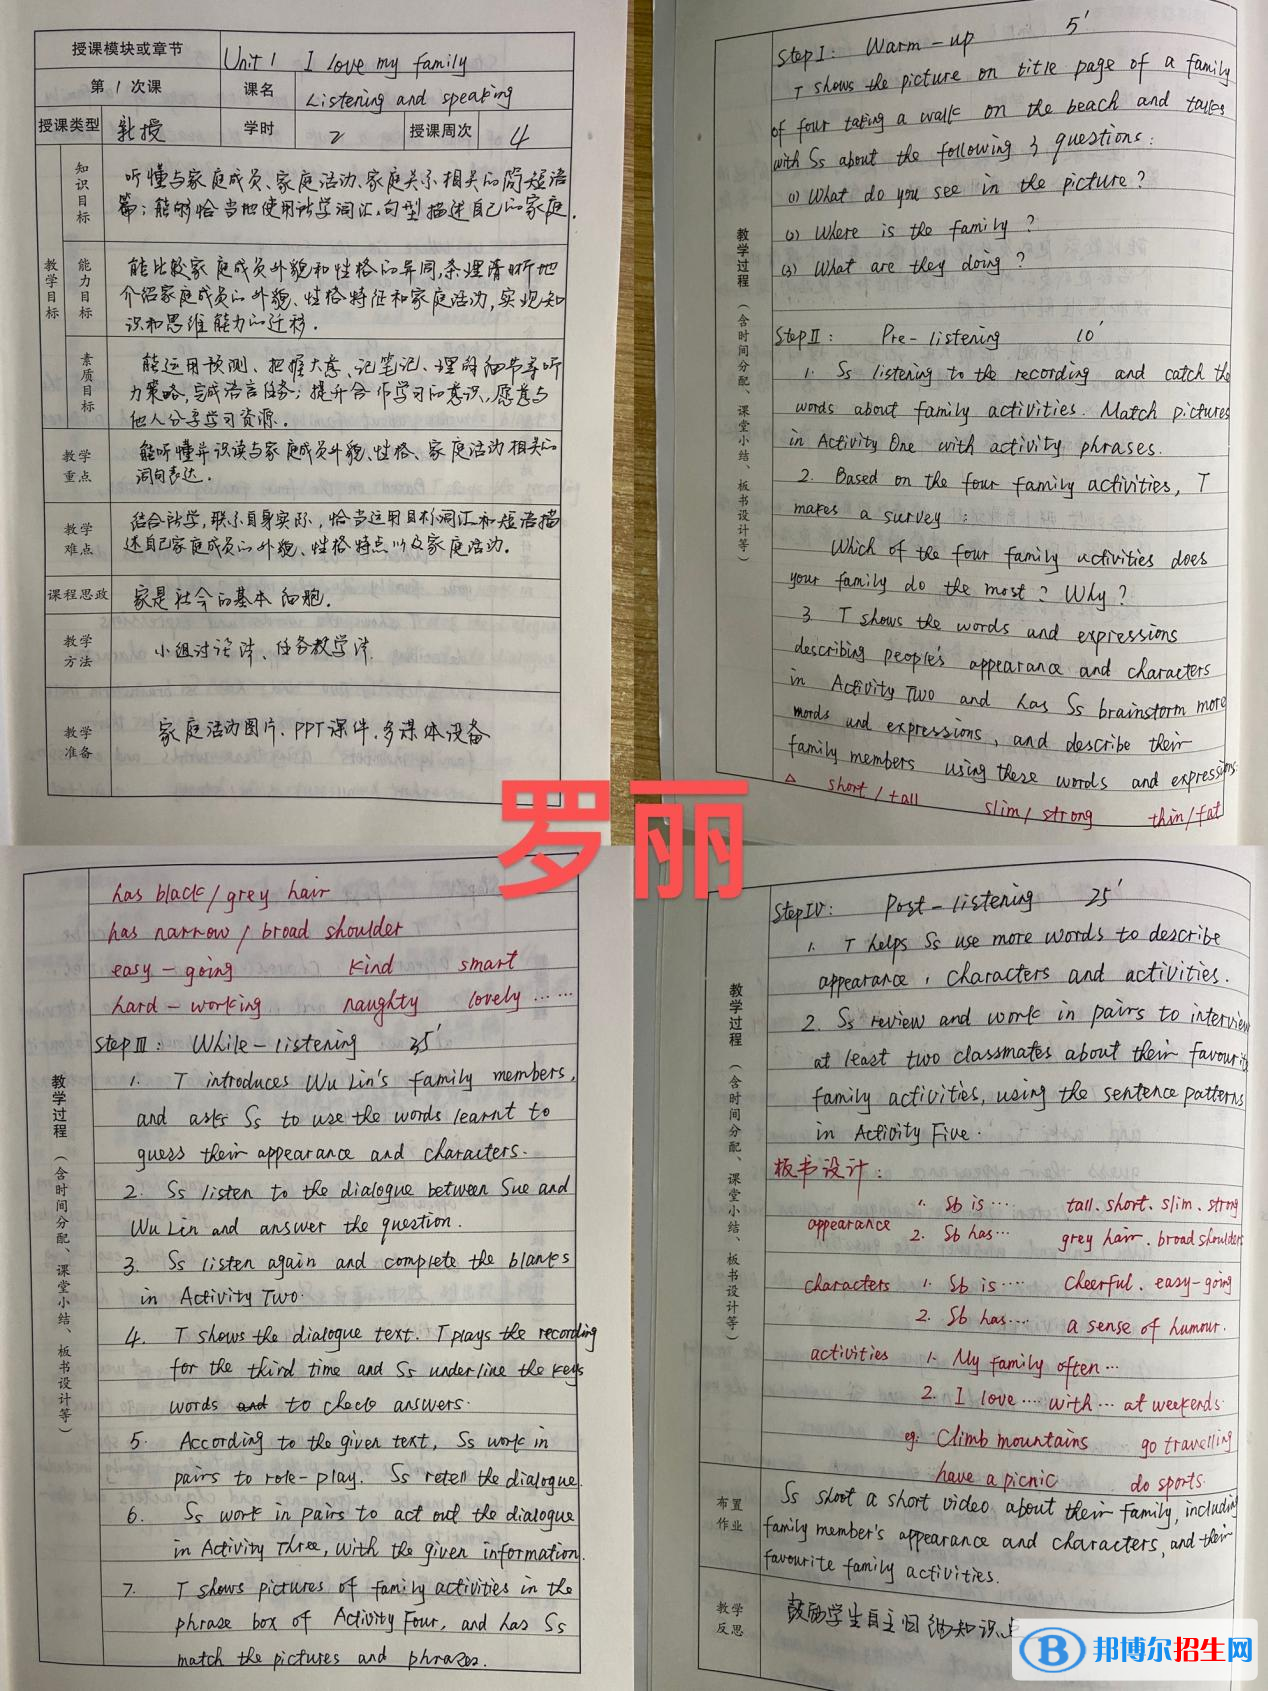 授课模块或章节 Unit 1 I love my family
第 1 次课 课名 Listening and speaking
授课类型 新授 学时 2 授课周次 4
教学目标
知识目标
听懂与家庭成员、家庭活动、家庭关系相关的简短语
篇；能够恰当地使用所学词汇、句型描述自己的家庭.
能力目标
能比较家庭成员外貌和性格的异同,条理清晰地
介绍家庭成员的外貌、性格特征和家庭活动,实现知
识和思维能力的迁移.
素质目标
能运用预测、把握大意、记笔记、理解细节等听
力策略,完成语言任务；提升合作学习的意识,愿意与
他人分享学习资源.
教学重点
能听懂并识读与家庭成员外貌、性格、家庭活动相关的
词句表达.
教学难点
结合所学,联系自身实际,恰当运用目标词汇和短语描
述自己家庭成员的外貌、性格特点以及家庭活动.
课程思政 家是社会的基本细胞.
教学方法 小组讨论法、任务教学法.
教学准备 家庭活动图片、PPT课件、多媒体设备
教学过程（含时间分配、课堂小结、板书设计等）
Step I: Warm-up 5'
T shows the picture on title page of a family
of four taking a walk on the beach and talks
with Ss about the following 3 questions:
(1) What do you see in the picture?
(2) Where is the family?
(3) What are they doing?
Step II: Pre-listening 10'
1. Ss listening to the recording and catch the
words about family activities. Match pictures
in Activity One with activity phrases.
2. Based on the four family activities, T
makes a survey:
Which of the four family activities does
your family do the most? Why?
3. T shows the words and expressions
describing people's appearance and characters
in Activity Two and has Ss brainstorm more
words and expressions, and describe their
family members using these words and expressions.
△ short/tall slim/strong thin/fat
罗丽
教学过程（含时间分配、课堂小结、板书设计等）
has black/grey hair
has narrow/broad shoulder
easy-going kind smart
hard-working naughty lovely ……
Step III: While-listening 35'
1. T introduces Wu Lin's family members,
and asks Ss to use the words learnt to
guess their appearance and characters.
2. Ss listen to the dialogue between Sue and
Wu Lin and answer the question.
3. Ss listen again and complete the blanks
in Activity Two.
4. T shows the dialogue text. T plays the recording
for the third time and Ss underline the keys
words and to check answers.
5. According to the given text, Ss work in
pairs to role-play. Ss retell the dialogue.
6. Ss work in pairs to act out the dialogue
in Activity Three, with the given information.
7. T shows pictures of family activities in the
phrase box of Activity Four, and has Ss
match the pictures and phrases.
教学过程（含时间分配、课堂小结、板书设计等）
Step IV: Post-listening 25'
1. T helps Ss use more words to describe
appearance, characters and activities.
2. Ss review and work in pairs to interview
at least two classmates about their favourite
family activities, using the sentence patterns
in Activity Five.
板书设计:
1. Sb is … tall. short. slim. strong
appearance 2. Sb has… grey hair. broad shoulders
characters 1. Sb is …. cheerful. easy-going
2. Sb has…. a sense of humour.
activities 1. My family often …
2. I love … with … at weekends.
eg: Climb mountains go travelling
have a picnic do sports.
布置作业
Ss shoot a short video about their family, including
family member's appearance and characters, and their
favourite family activities.
教学反思
鼓励学生自主归纳知识点
邦博尔招生网